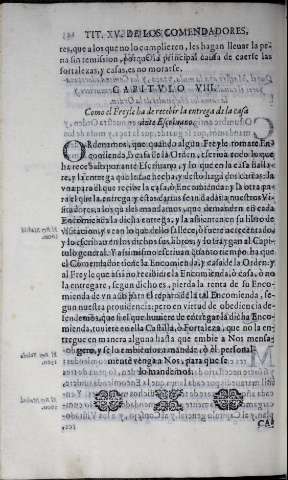 TIT. XV. DE LOS COMENDADORES,
res, que a los que no lo cumplieren, les hagan lleuar la pe-
na sin remission, porque la principal causa de caerse las
fortalezas, y casas, es no morarse.
CAPITVLO VIII.
Como el Freyle ha de recebir la entrega de la casa
ante Escriuano.
ORdenamos, que quando algun Freyle tomare En-
comienda, ò casa de la Orden, escriua todo lo que
ha rescebido por ante Escriuano, y lo que en la casa falta-
re, y la entrega que le fue hecha, y desto haga dos cartas: la
vna para èl que recibe la casa, ò Encomienda: y la otra pa-
ra el que la entrega, y estas cartas se undadas a nuestros Vi-
sitadores, a los quales mandamos, que demanden en cada
Encomienda la dicha entrega, y la assienten en su libro de
visitacion, y vean lo que dello fallece, ò fuere acrecentado,
y lo escriban en los dichos sus libros, y lo traygan al Capi-
tulo general. Y assimismo escriuan quanto tiempo ha que
el Comendador tiene la Encomienda, y casa de la Orden: y
al Freyle que assi no recibiere la Encomienda, ò casa, ò no
la entregare, segun dicho es, pierda la renta de su Enco-
mienda de vn año para el reparo de la tal Encomienda, se-
gun nuestra prouidencia: pero en virtud de obediencia de-
fendemos, que si el que huuiere de entregar la dicha Enco-
mienda, tuuiere en ella Castillo, ò Fortaleza, que no la en-
tregue en manera alguna hasta que embie a Nos mensa-
gero, y se lo embiemos a mandar, ò èl personal-
mente venga a Nos, para que se
lo mandemos.
CA-